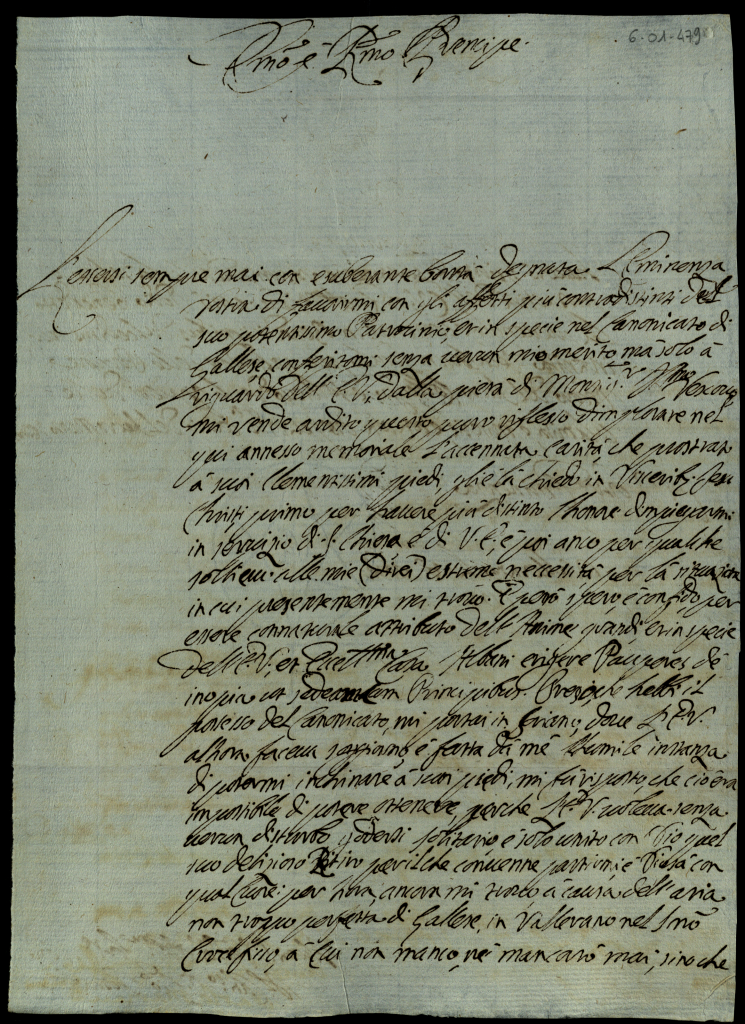 6-01-479
Emo e Rmo Prencipe.
L'essersi sempre mai con esuberante bontà degnata l'Eminenza
vostra di favorirmi con gli affetti più contradistinti del
suo potentissimo Patrocinio, et in specie nel Canonicato di
Gallese conferitomi senza verun mio merito, mà solo à
riguardo dell' E.V. dalla pietà di Monsig.r Vescovo
mi rende ardito questo puro riflesso d'implorare nel
qui annesso memoriale l'accennata Carità, che prostrato
à suoi Clementissimi piedi, gliè la chiedo in Visceribus Jesu
Christi primo per havere più distinto l'honore d'impiegarmi
in servizio di S. Chiesa è di V.E., è poi anco per qualche
sollievo alle mie (direi) estreme necessità per la situazione
in cui presentemente mi trovo. E però spero, è confido, per
essere connaturale attributo dell'Anime grandi et in specie
dell'E.V. et Eccell.ma Casa Albani erigere Pauperes de
inopia ut sedeant cum Principibus. Preso che hebbi il
possesso del Canonicato, mi portai in Soriano, dove l'E.V.
allhora faceva soggiorno, è fatta dà mè humile instanza
di potermi inchinare à suoi piedi, mi fù risposto, che ciò era
impossibile di potere ottenere perche l'E.V. voleva senza
verun disturbo godersi solitario è solo unito con Dio quel
suo delizioso Ritiro per il che convenne partirmi, è Dio sà con
qual Cuore: per hora, ancora mi trovo, à causa dell'aria
non troppo perfetta di Gallese, in Vallerano nel S.mo
Crocefisso, à Cui non manco, nè mancarò mai, sino che